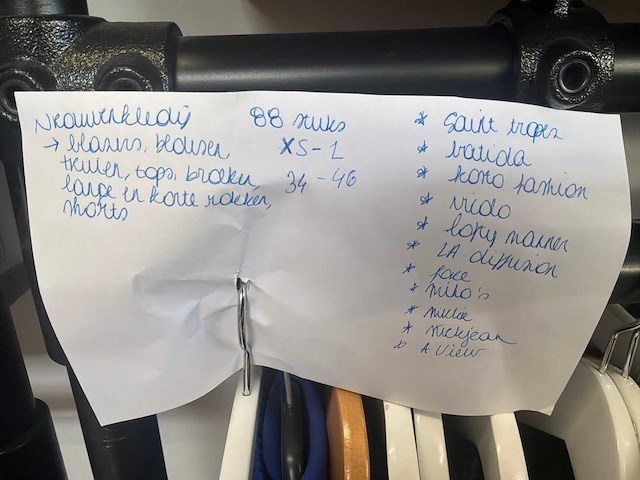 Vrouwenkledij
→ blazers, blousen
truien, tops, broeken,
lange en korte rokken,
shorts
88 stuks
XS - L
34 - 46
* Saint tropez
* batida
* koko fashion
* lofty manner
* LA diffusion
* face
* milo's
* nickjean
* A View